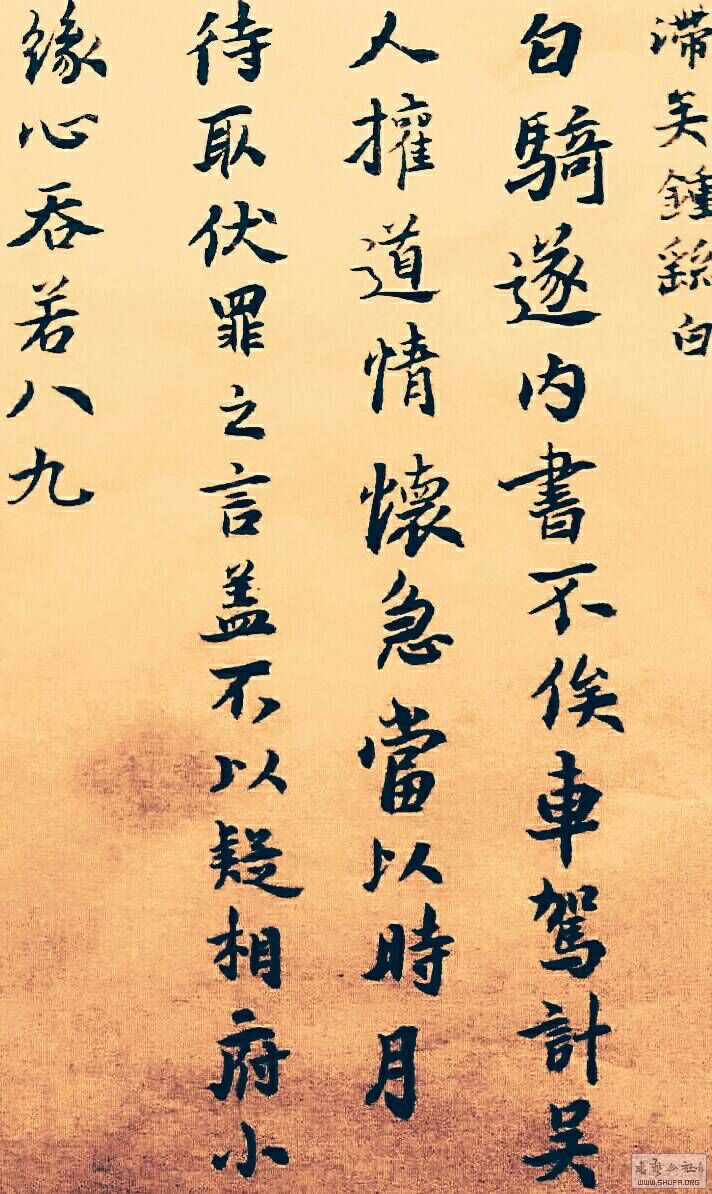 滞矣鍾繇白
白騎遂内書不俟車駕計吴
人權道情懷急當以時月
待取伏罪之言盖不以疑相府小
緣心吞若八九
WWW.SHUFA.ORG